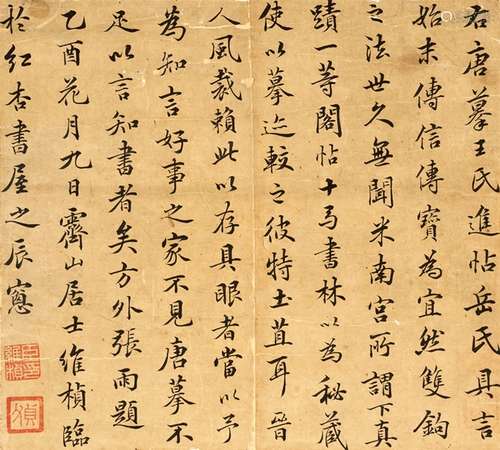 右唐摹王氏進帖岳氏具言
始末傳信傳寶為宜然雙鉤
之法世久無聞米南宮所謂下真
蹟一等閣帖十馬書林以為秘藏
使以摹迄較之彼特土苴耳晉
人風裁賴此以存具眼者當以予
為知言好事之家不見唐摹不
足以言知書者矣方外張雨題
乙酉花月九日霽山居士維楨臨
於紅杏書屋之辰窻